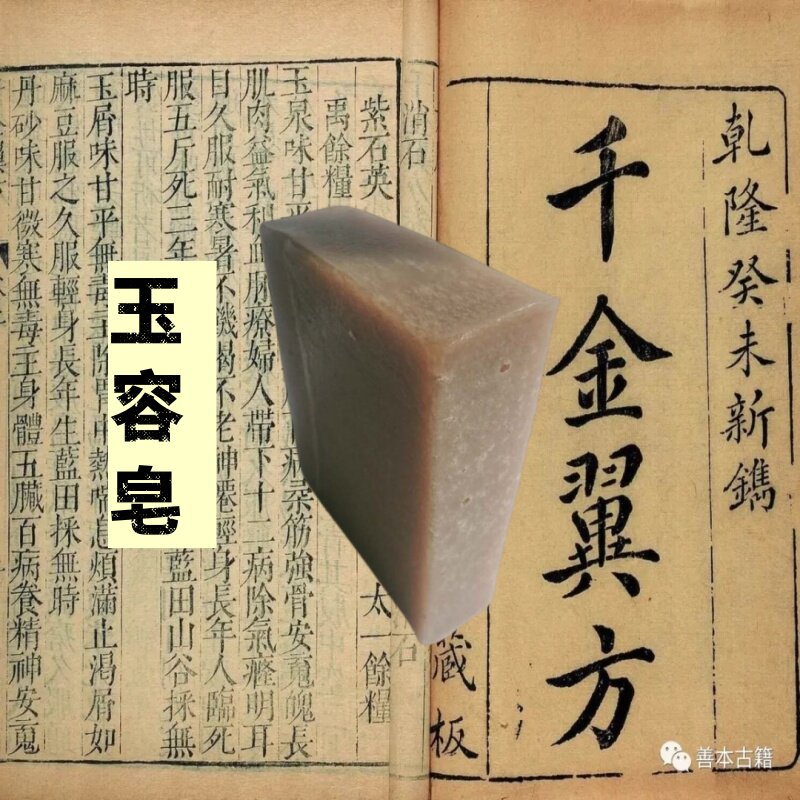 乾隆癸未新鐫
千金翼方
藏板
消石
紫石英 太一餘糧
禹餘糧
玉泉味甘平 病柔筋強骨安䰟魄長
肌肉益氣利血脉療婦人帶下十二病除氣癃明耳
目久服耐寒暑不饑渴不老神僊輕身長年人臨死
服五斤死三年 藍田山谷採無
時
玉屑味甘平無毒主除胃中熱喘息煩滿止渴屑如
麻豆服之久服輕身長年生藍田採無時
丹砂味甘微寒無毒主身體五臟百病養精神安䰟
玉容皂
善本古籍